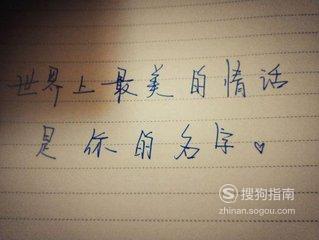 世界上最美的情话
是你的名字♡
搜狗指南
zhinan.sogou.com